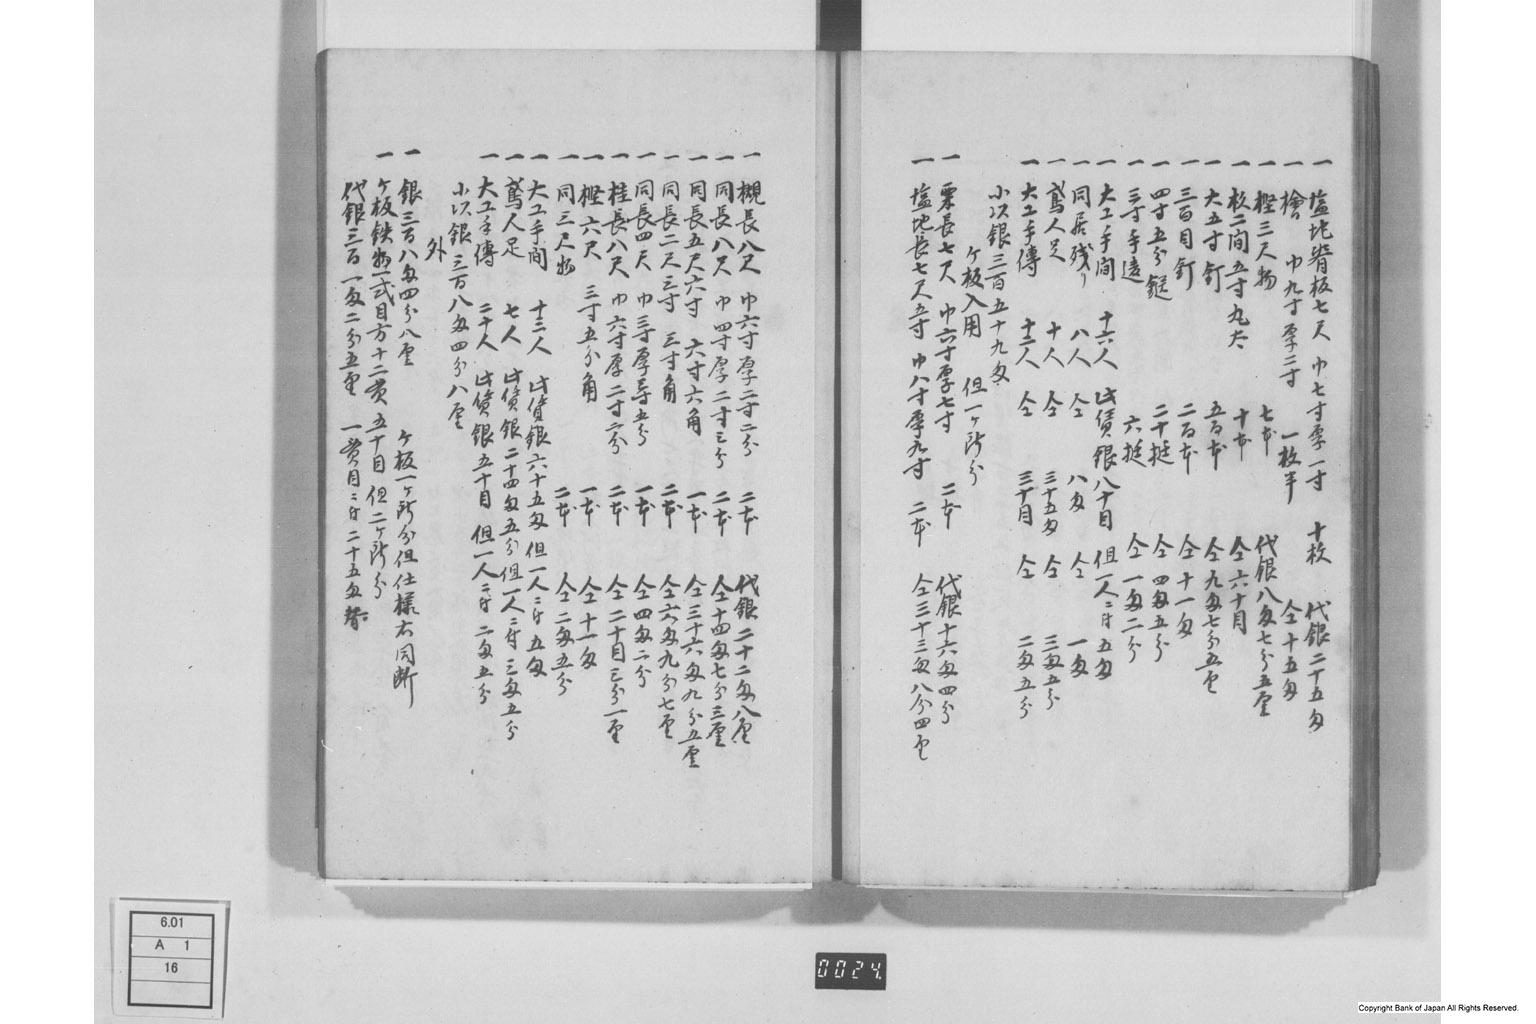 一 塩地背板七尺 巾七寸厚一寸 十枚 代銀二十五匁
一 檜 巾九寸厚二寸 一枚半 仝十五匁
一 樫三尺物 七本 代銀八匁七分五厘
一 松二間五寸丸太 十本 仝六十目
一 大五寸釘 五百本 仝九匁七分五厘
一 三百目釘 二百本 仝十一匁
一 四寸五分鎹 二十挺 仝四匁五分
一 三寸手違 六挺 仝一匁二分
一 大工手間 十六人 此賃銀八十目 但一人ニ付五匁
一 同居残り 八人 仝 八匁 仝 一匁
一 鳶人足 十人 仝 三十五匁 仝 三匁五分
一 大工手傳 十二人 仝 三十目 仝 二匁五分
小以銀三百五十九匁
ケ板入用 但一ケ所分
一 栗長七尺 巾六寸厚七寸 二本 代銀十六匁四分
一 塩地長七尺五寸 巾八寸厚九寸 二本 仝三十三匁八分四厘
一 槻長八尺 巾六寸厚二寸二分 二本 代銀二十二匁八厘
一 同長八尺 巾四寸厚二寸三分 二本 仝十四匁七分三厘
一 同長五尺六寸 六寸六角 一本 仝三十六匁九分五厘
一 同長二尺三寸 三寸角 二本 仝六匁九分七厘
一 同長四尺 巾三寸厚一寸五分 一本 仝四匁二分
一 桂長八尺 巾六寸厚二寸二分 二本 仝二十目三分一厘
一 樫六尺 三寸五分角 一本 仝十一匁
一 同三尺物 二本 仝二匁五分
一 大工手間 十三人 此賃銀六十五匁 但一人ニ付 五匁
一 鳶人足 七人 此賃銀二十四匁五分 但一人ニ付 三匁五分
一 大工手傳 二十人 此賃銀五十目 但一人ニ付 二匁五分
小以銀三百八匁四分八厘
外
一 銀三百八匁四分八厘 ケ板一ケ所分但仕様右同断
一 ケ板鉄物一式目方十二貫五十目 但二ケ所分
代銀三百一匁二分五厘 一貫目ニ付二十五匁替
6.01
A 1
16
0024
Copyright Bank of Japan All Rights Reserved.